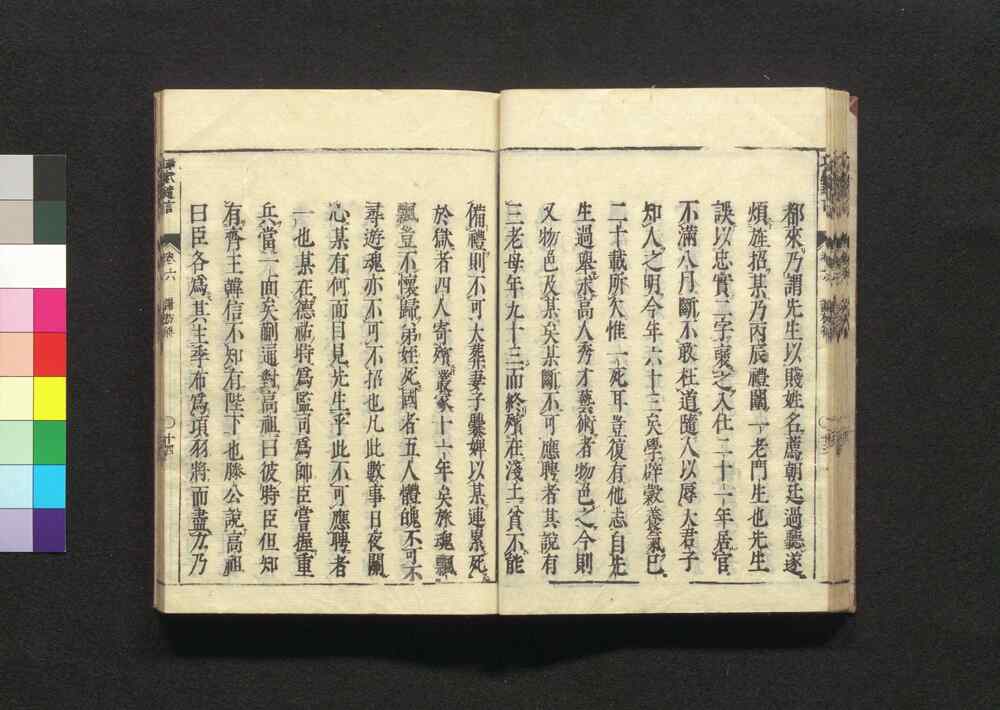 都來乃謂先生以賤姓名薦朝廷過聽遂
煩旌招某乃丙辰禮闈一老門生也先生
誤以忠實二字褒之入仕二十一年居官
不滿八月斷不敢枉道隨人以辱大君子
知人之明今年六十三矣學辟穀養氣已
二十載所欠惟一死耳豈復有他志自先
生過舉求高人秀才藝術者物色之今則
又物色及某矣某斷不可應聘者其說有
三老母年九十三而終殯在淺土貧不能
備禮則不可大葬妻子爨婢以某連累死
於獄者四人寄殯叢冢十一年矣旅魂飄
飄豈不懷歸弟姪死國者五人體魄不可不
尋遊魂亦不可不招也凡此數事日夜關
心某有何面目見先生乎此不可應聘者
一也某在德祐時爲監司爲帥臣嘗握重
兵當一面矣蒯通對高祖曰彼時臣但知
有齊王韓信不知有陛下也滕公說高祖
曰臣各爲其主季布爲項羽將而盡力乃
卷六
十四